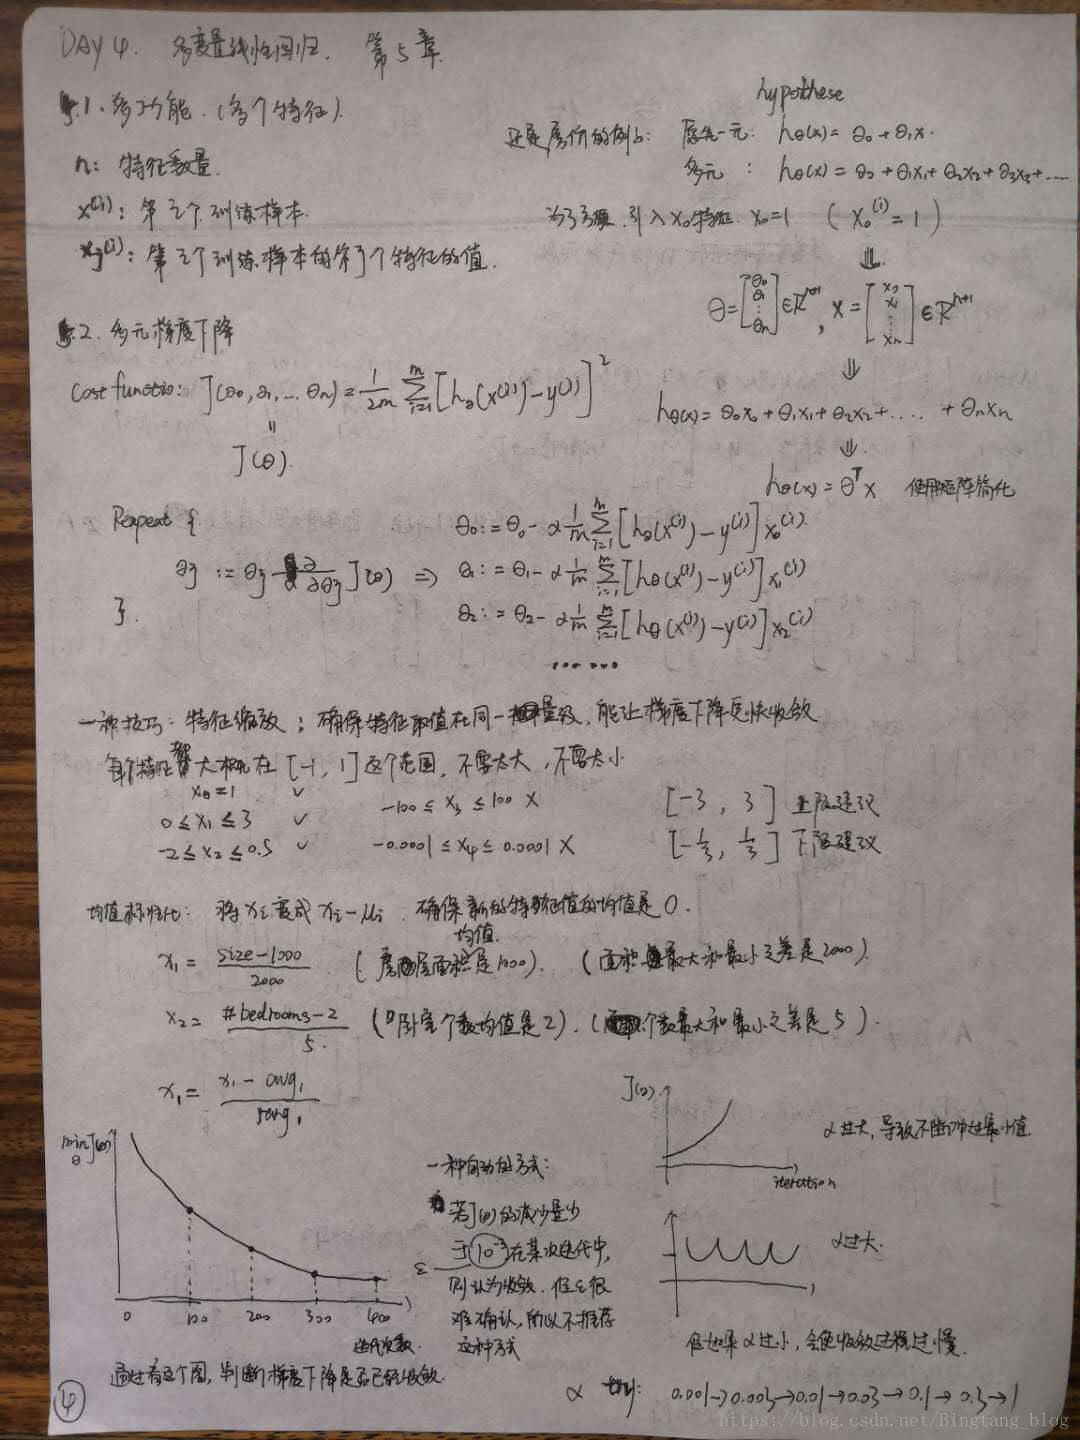 DAY 4. 多变量线性回归. 第5章.
5.1. 多功能.(多个特征).
n: 特征数量.
x^(i): 第i个训练样本.
x_j^(i): 第i个训练样本的第j个特征的值.
hypothese
还是房价的例子: 原先一元: hθ(x) = θ0 + θ1x.
多元: hθ(x) = θ0 + θ1x1 + θ2x2 + θ3x3 + ....
为了方便, 引入x0特征. x0=1 (x0^(i) = 1)
⇓
θ = [θ0 θ1 ⋮ θn] ∈ R^n+1, x = [x0 x1 ⋮ xn] ∈ R^n+1
⇓
hθ(x) = θ0x0 + θ1x1 + θ2x2 + .... + θnxn
⇓
hθ(x) = θ^T x 使用矩阵简化
5.2. 多元梯度下降
Cost functio: J(θ0, θ1, ... θn) = 1/2m Σ_{i=1}^m [hθ(x^(i)) - y^(i)]^2
=
J(θ).
Repeat {
θj := θj - α ∂/∂θj J(θ) ⇒
}.
θ0 := θ0 - α 1/m Σ_{i=1}^m [hθ(x^(i)) - y^(i)] x0^(i)
θ1 := θ1 - α 1/m Σ_{i=1}^m [hθ(x^(i)) - y^(i)] x1^(i)
θ2 := θ2 - α 1/m Σ_{i=1}^m [hθ(x^(i)) - y^(i)] x2^(i)
......
一种技巧: 特征缩放; 确保特征取值在同一量级, 能让梯度下降更快收敛
每个特征都大概在[-1, 1]这个范围, 不要太大, 不要太小
x0=1 ✓
0 ≤ x1 ≤ 3 ✓ -100 ≤ x3 ≤ 100 X [-3, 3] 上限建议
-2 ≤ x2 ≤ 0.5 ✓ -0.0001 ≤ x4 ≤ 0.0001 X [-1/3, 1/3] 下限建议
均值标准化: 将xi变成xi-μi. 确保新的特征值的均值是0.
均值
x1 = size-1000/2000 (房屋面积是1000). (面积最大和最小之差是2000).
x2 = #bedrooms-2/5. (卧室个数均值是2). (个数最大和最小之差是5).
x1 = x1 - avg1/rang1
min θ J(θ)
0 100 200 300 400
迭代次数.
通过看这个图, 判断梯度下降是否已经收敛.
一种自动的方式:
若J(θ)的减少量少
于10^-3在某次迭代中,
ε
则认为收敛. 但ε很
难确认, 所以不推荐
这种方式
J(θ)
iteration
α过大, 导致不断冲过最小值
α过大.
但如果α过小, 会使收敛过程过慢.
α try: 0.001→0.003→0.01→0.03→0.1→0.3→1
4
https://blog.csdn.net/Bingtang_blog